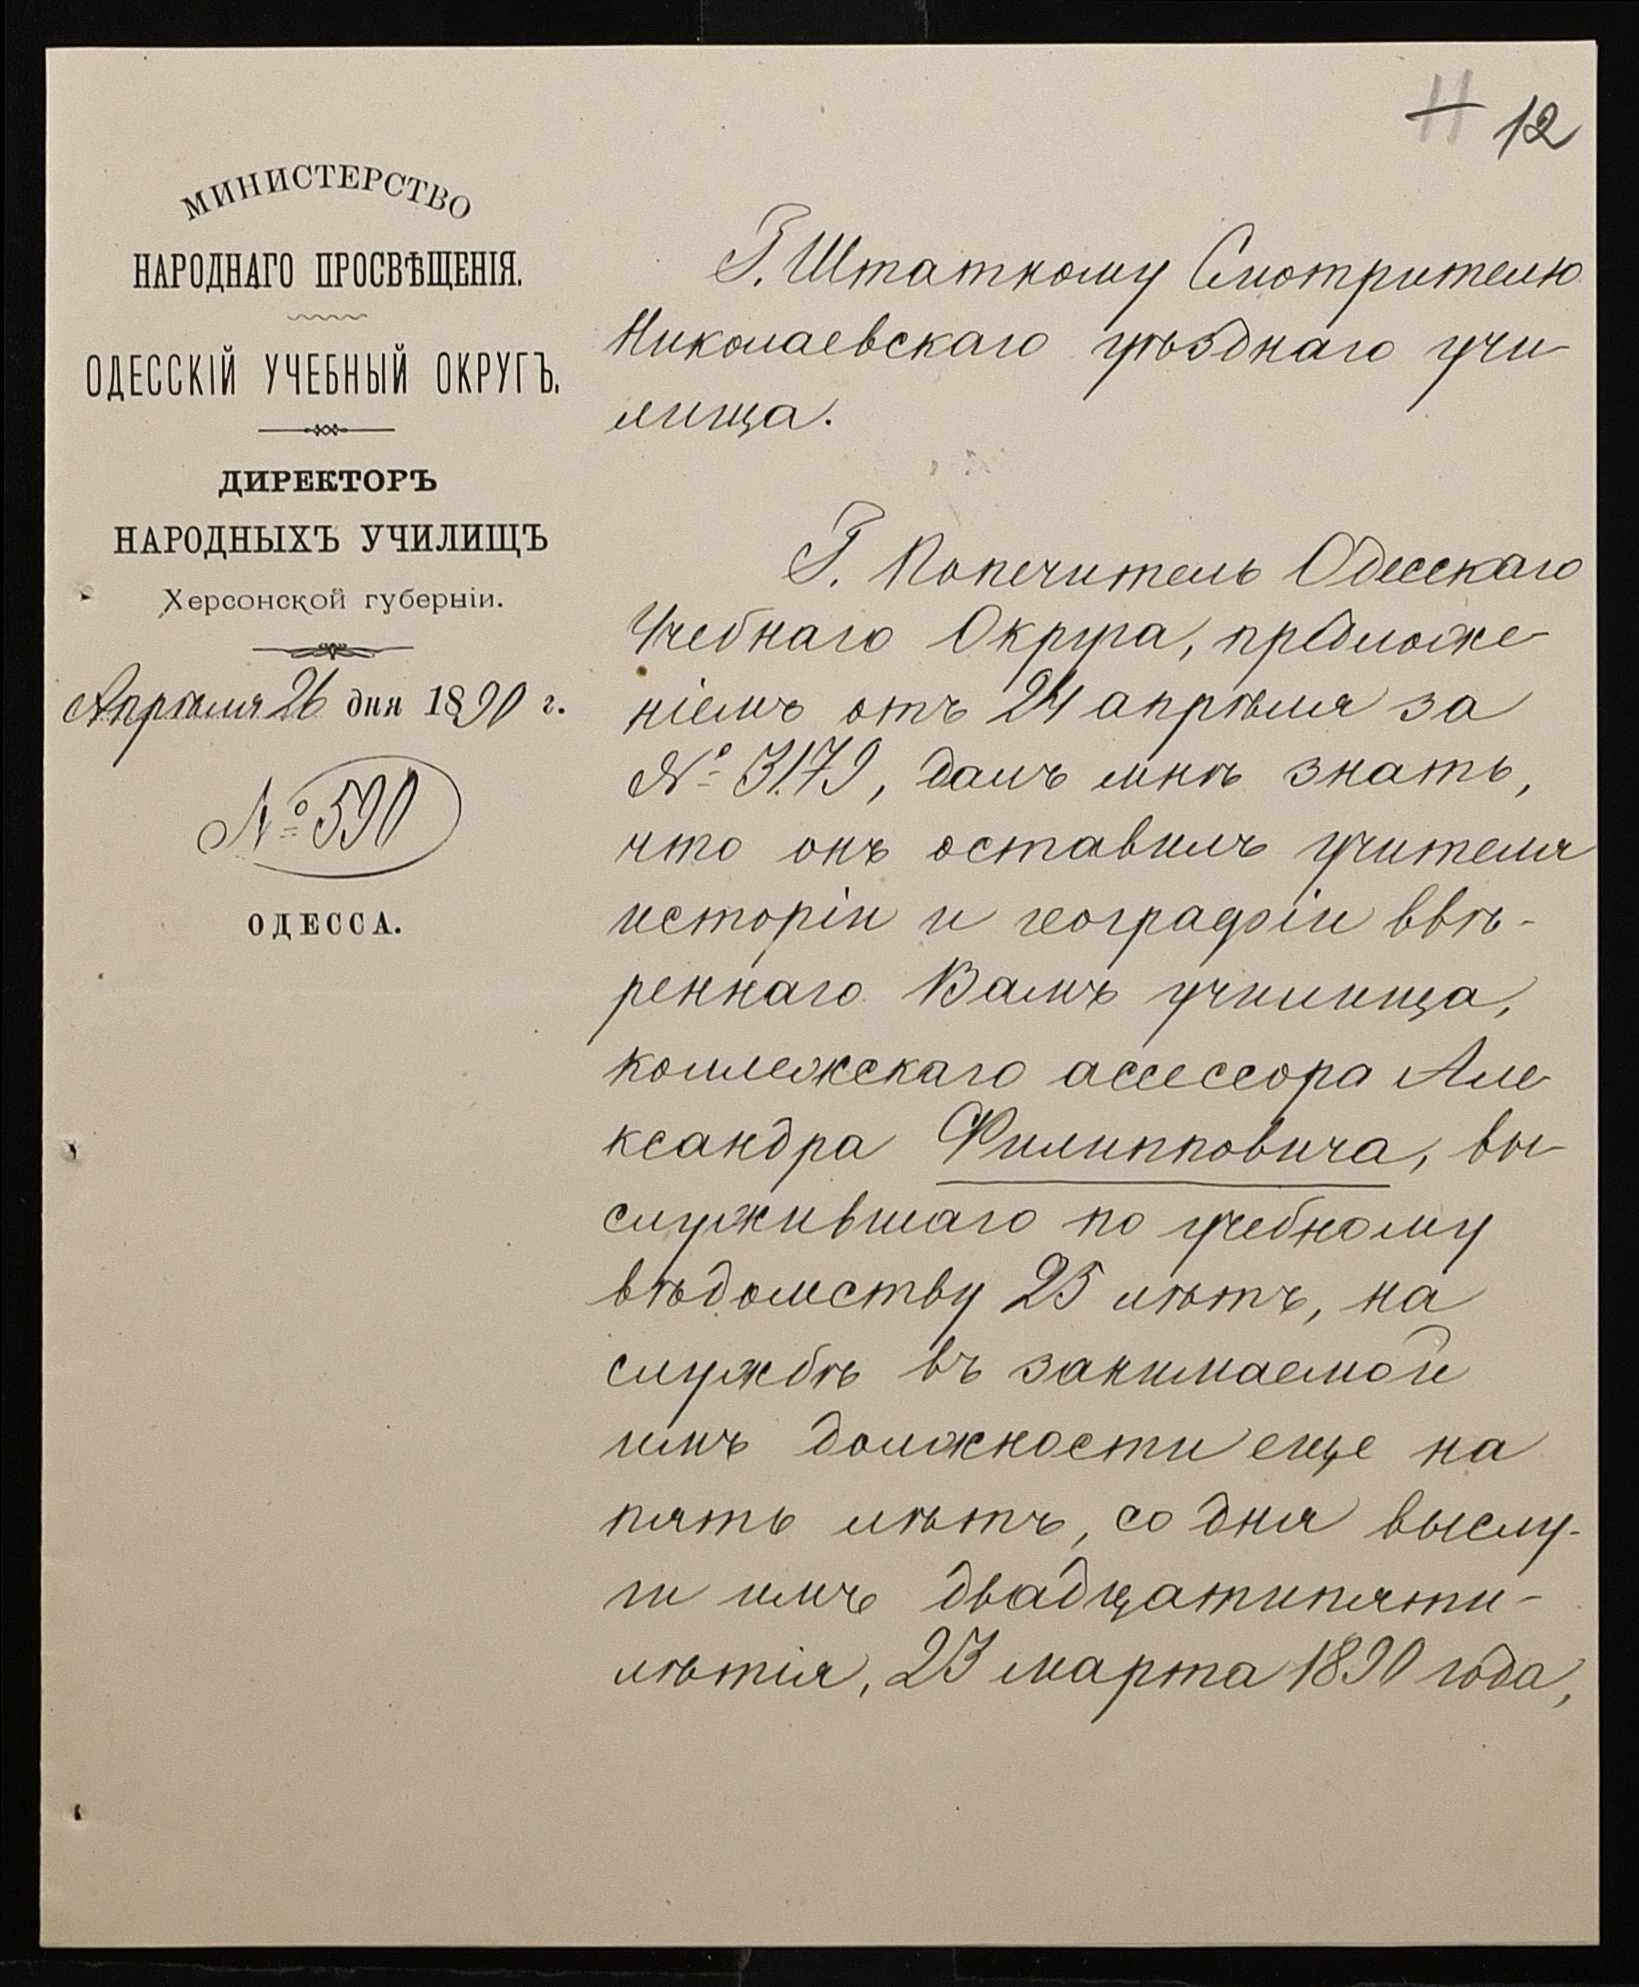 11 12
МИНИСТЕРСТВО
НАРОДНАГО ПРОСВѢЩЕНІЯ.
ОДЕССКІЙ УЧЕБНЫЙ ОКРУГЪ.
ДИРЕКТОРЪ
НАРОДНЫХЪ УЧИЛИЩЪ
Херсонской губерніи.
Апрѣля 26 дня 1890 г.
№ 590
ОДЕССА.
Г. Штатному Смотрителю
Николаевскаго уѣзднаго учи-
лища.
Г. Попечитель Одесскаго
Учебнаго Округа, предложе-
ніемъ отъ 24 апрѣля за
№ 3179, далъ мнѣ знать,
что онъ оставилъ учителя
исторіи и географіи ввѣ-
реннаго Вамъ училища,
коллежскаго ассессора Але-
ксандра Филипповича, вы-
служившаго по учебному
вѣдомству 25 лѣтъ, на
службѣ въ занимаемой
имъ должности еще на
пять лѣтъ, со дня выслу-
ги имъ двадцатипяти-
лѣтія, 23 марта 1890 года,